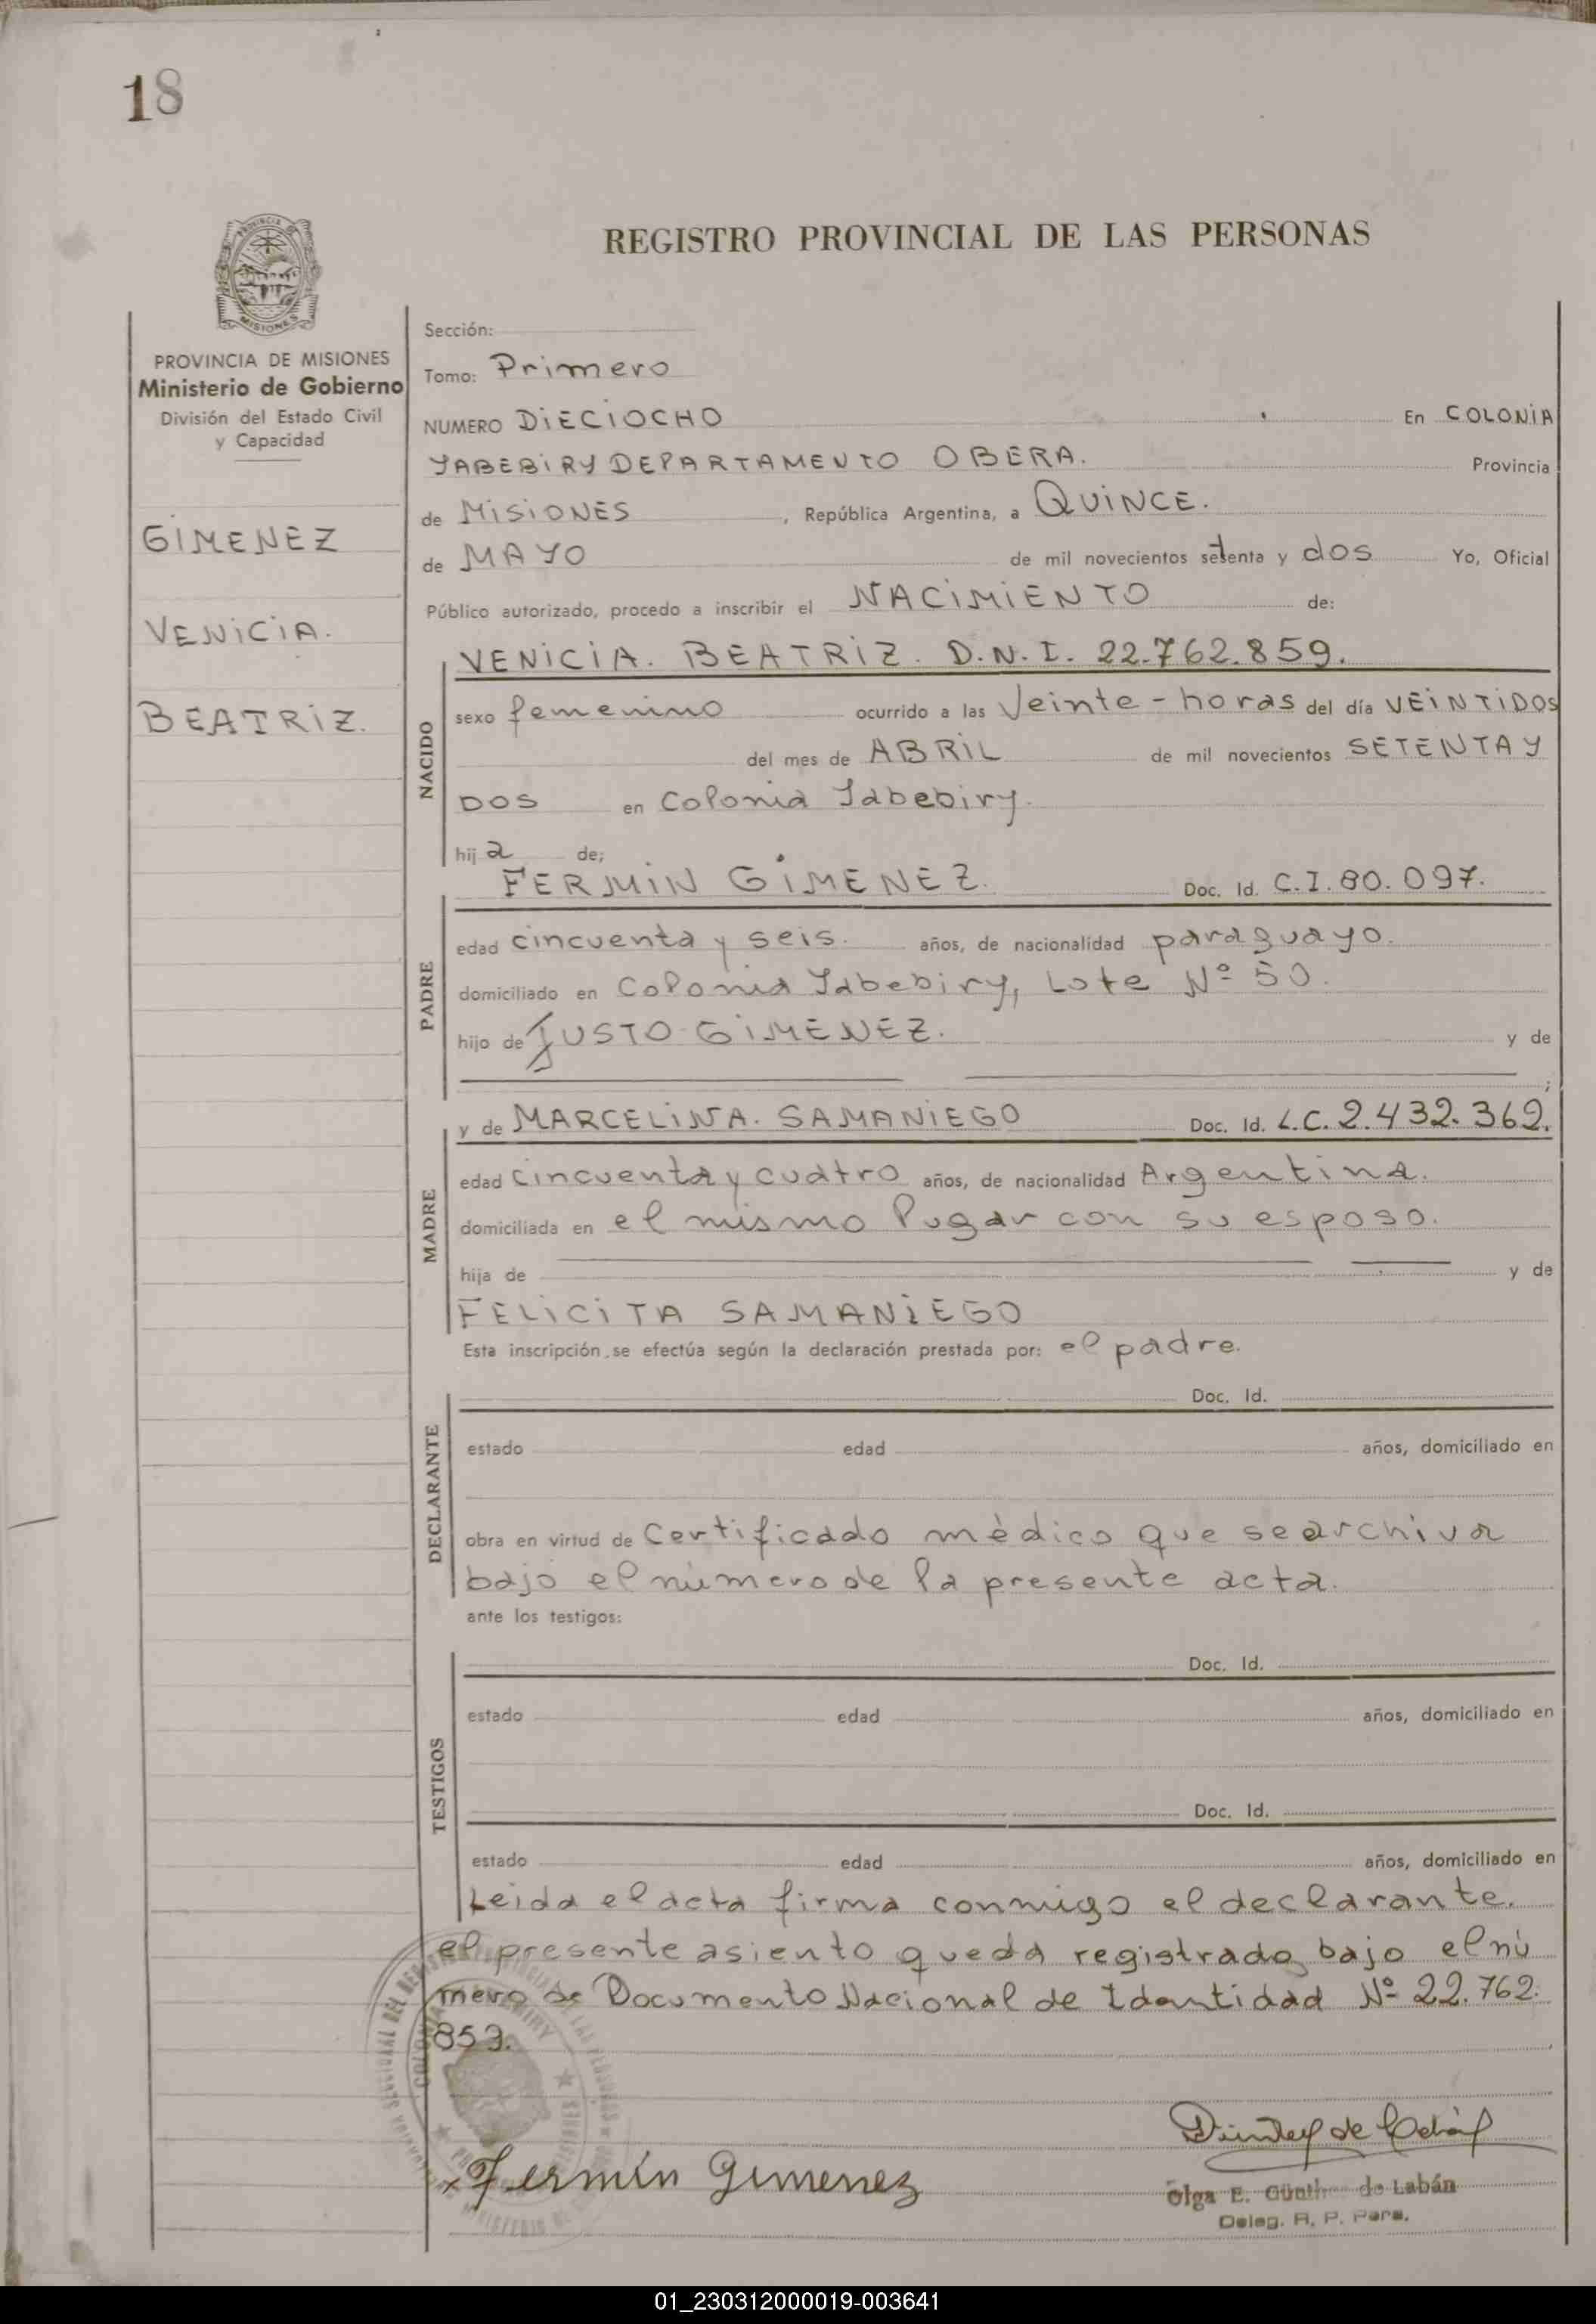 18
PROVINCIA DE MISIONES
Ministerio de Gobierno
División del Estado Civil
y Capacidad
GIMENEZ
VENICIA.
BEATRIZ.
REGISTRO PROVINCIAL DE LAS PERSONAS
Sección:
Tomo: Primero
NUMERO DIECIOCHO En COLONIA
YABEBIRY DEPARTAMENTO OBERA. Provincia
de MISIONES , República Argentina, a QUINCE.
de MAYO de mil novecientos setenta y dos Yo, Oficial
Público autorizado, procedo a inscribir el NACIMIENTO de:
NACIDO
VENICIA. BEATRIZ. D.N.I. 22.762.859.
sexo femenino ocurrido a las Veinte - horas del día VEINTIDOS
del mes de ABRIL de mil novecientos SETENTA Y
DOS en Colonia Yabebiry.
hij a de;
PADRE
FERMIN GIMENEZ. Doc. Id. C.I. 80.097.
edad cincuenta y seis. años, de nacionalidad paraguayo.
domiciliado en Colonia Yabebiry, Lote Nº 50.
hijo de JUSTO GIMENEZ. y de
;
MADRE
y de MARCELINA. SAMANIEGO Doc. Id. L.C. 2.432.362.
edad Cincuenta y cuatro años, de nacionalidad Argentina.
domiciliada en el mismo lugar con su esposo.
hija de y de
FELICITA SAMANIEGO
Esta inscripción se efectúa según la declaración prestada por: el padre.
DECLARANTE
Doc. Id.
estado edad años, domiciliado en
obra en virtud de Certificado mèdico que se archiva
bajo el nùmero de la presente acta.
ante los testigos:
TESTIGOS
Doc. Id.
estado edad años, domiciliado en
Doc. Id.
estado edad años, domiciliado en
Leida el acta firma conmigo el declarante.
el presente asiento queda registrado bajo el nù
mero de Documento Nacional de Identidad Nº 22.762.
853.
x Fermín Gimenez
Olga E. Günther de Labán
Deleg. R. P. Pers.
01_230312000019-003641